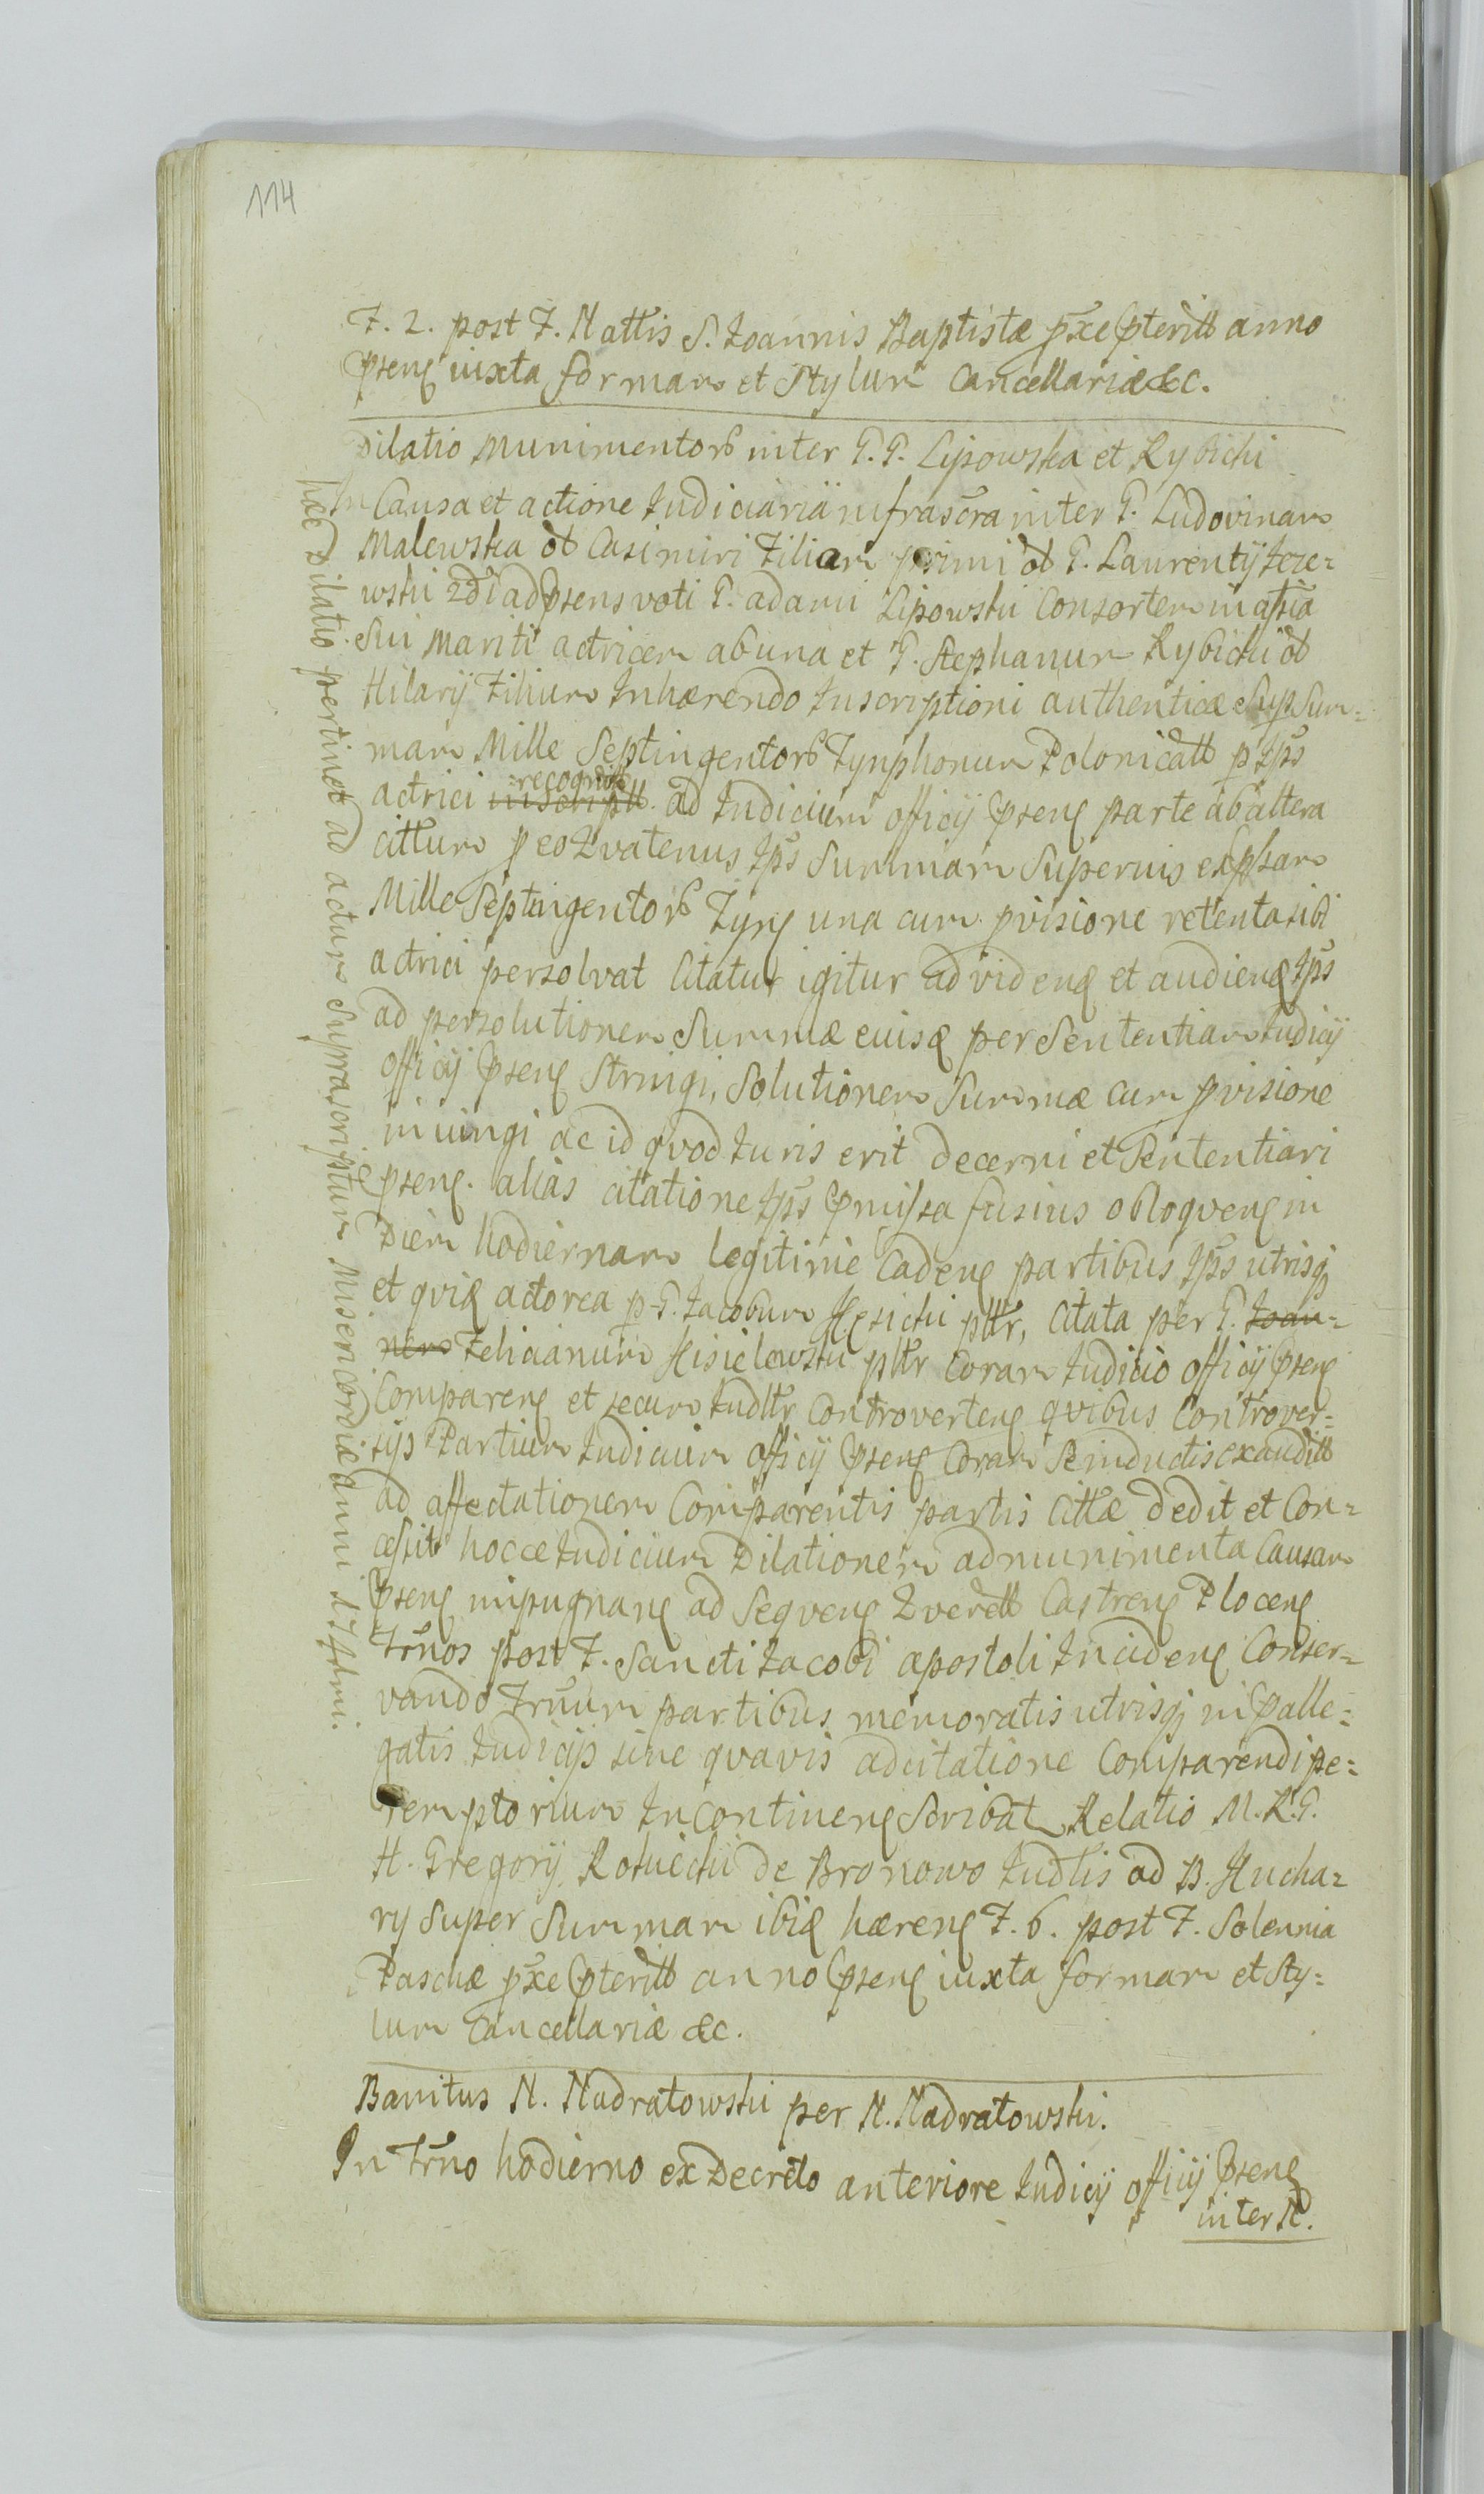 114
F. 2. post F. Nattis S. Joannis Baptistæ pxe pteritt anno
psenς iuxta formam et Stylum Cancellariæ &c.
Dilatio Munimentorb inter G.G. Lipowska et Rybicki
In Causa et actione Judiciaria infrascra inter G. Ludovinam
Malewska ob Casimiri Filiam primi ob G. Laurentij Jeze=
wski 2di ad psens voti G. Adami Lipowski Consortem in assia
Sui Mariti actricem ab una et G. Stephanum Rybicki ob
Hilarij Filium Inhærendo Inscriptioni authenticæ Sup Sum=
mam Mille Septingentorb Tynphonum Polonicatt p Jps
actrici inscriptt recognitt ad Judicium officij psenς parte ab altera
cittum p eo Qvatenus Jps Summam Superius expssam
Mille Septingentorb Tynς una cum pvisione retenta sibi
actrici persolvat Citatur igitur ad videnς et audienς Jps
ad persolutionem Summæ eiusς per Sententiam Judicij
officij psenς Stringi, Solutionem Summæ cum pvisione
iniungi ac id qvod Juris erit decerni et Sententiari
psenς. alias citatione Jps pmissa fusius obloqvenς in
Diem hodiernam legitime Cadenς partibus Jps utrisq
et qviς actorea p G. Jacobum Kęsicki pttr, Citata per G. Joan=
nem Felicianum Kisielewski pttr Coram Judicio officij psenς
Comparenς et secum Judltr Controvertenς qvibus Controver=
sijs Partium Judicium officij psenς Coram Se inductis exauditt
ad affectationem Comparentis partis Cittæ dedit et Con=
cessit hocce Judicium Dilationem ad munimenta Causam
psenς inpugnanς ad Seqvenς Qverell Castrenς Plocenς
Trnos post F. Sancti Jacobi apostoli Incidenς Conser=
vando Trnum partibus memoratis utrisq in pralle=
gatis Judicijs sine qvavis adcitatione Comparendi pe=
remptorium In Continenς Scribat Relatio M. R. G.
H. Gregorij Rokicki de Bronowo Judlis ad B. Kucha=
ry Super Summam ibiς hærenς F. 6. post F. Solennia
Paschæ pxe pteritt anno psenς iuxta formam et Sty=
lum Cancellariæ &c.
Banitus N. Nadratowski per N. Nadratowski.
In Trno hodierno ex Decreto anteriore Judicij officij psenς
inter N.
hæc Dilatio pertinet ad actum Suprascriptum Misericordiæ anni 17